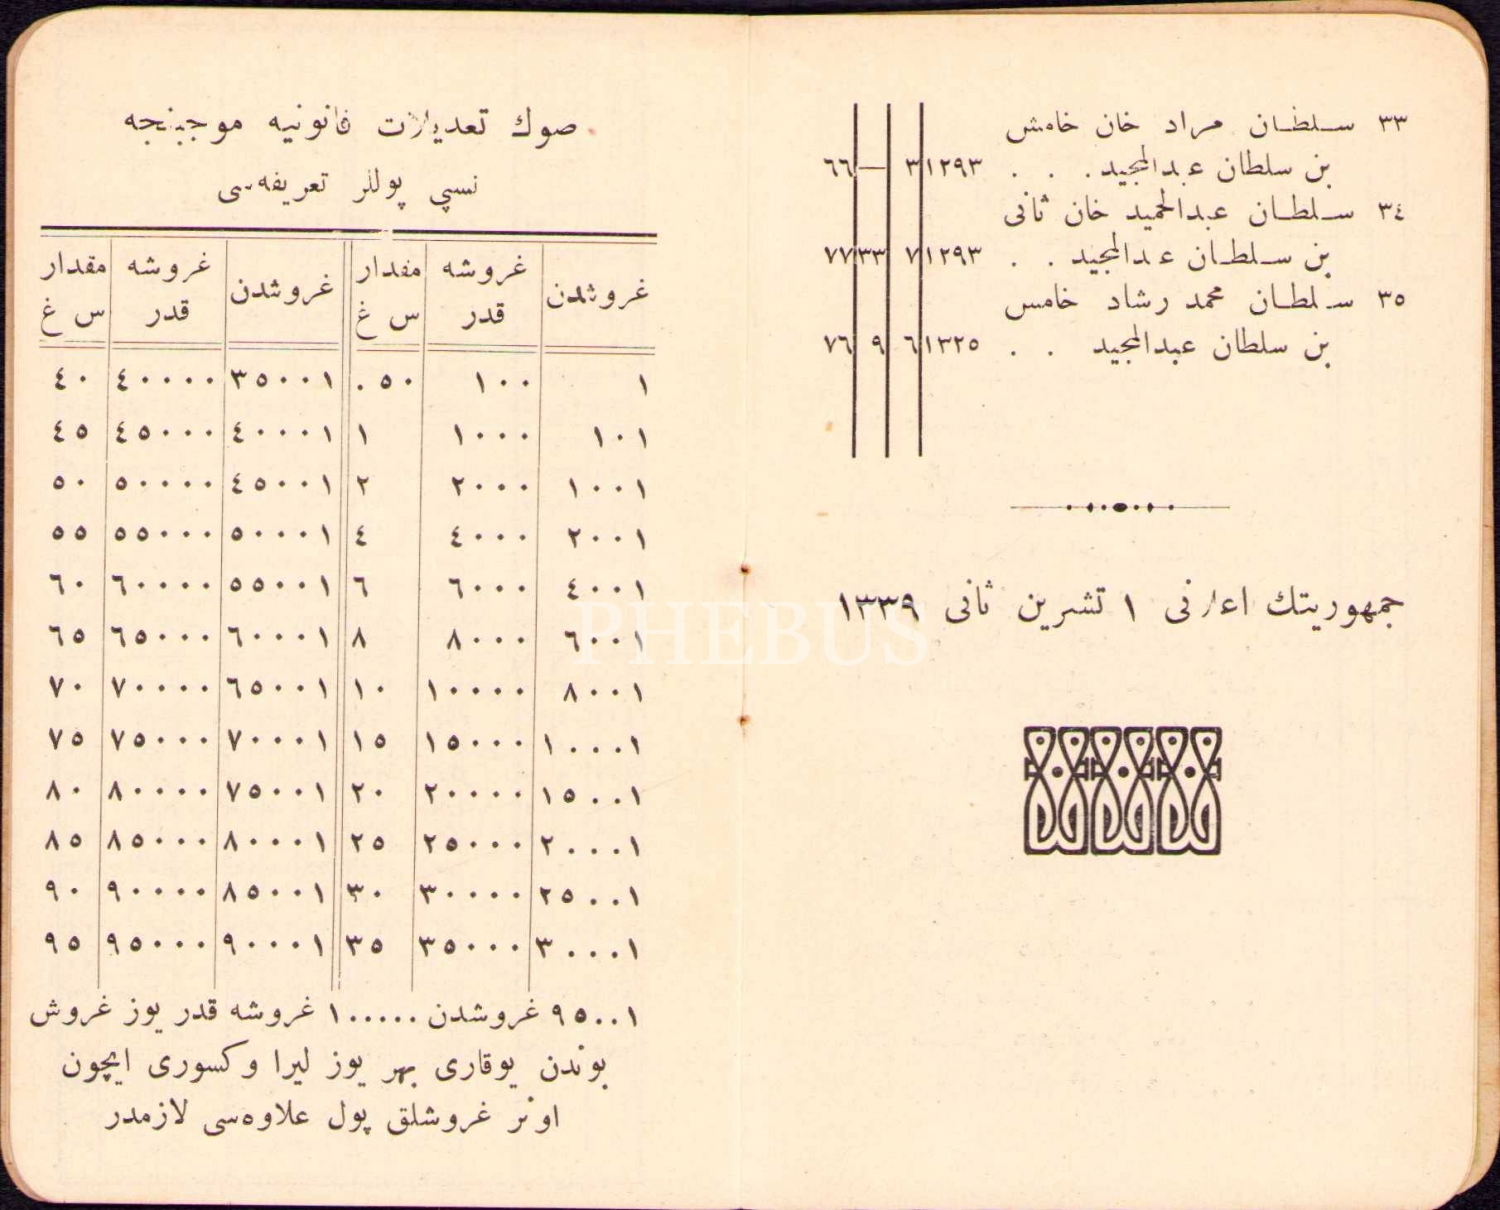 ٣٣ سلطان مراد خان خامس
بن سلطان عبدالمجید . . ١٢٩٣ ٣ — ٦٦
٣٤ سلطان عبدالحمید خان ثانی
بن سلطان عبدالمجید . . ١٢٩٣ ٧ ٣٣ ٧٧
٣٥ سلطان محمد رشاد خامس
بن سلطان عبدالمجید . . ١٣٢٥ ٦ ٩ ٧٦
جمهوریتك اعلانی ١ تشرین ثانی ١٣٣٩
صوك تعدیلات قانونیه موجبنجه
نسبی پوللر تعریفه‌سی
غروشدن غروشه قدر مقدار س غ غروشدن غروشه قدر مقدار س غ
١ ١٠٠ ٥٠. ٣٥٠٠١ ٤٠٠٠٠ ٤٠
١٠١ ١٠٠٠ ١ ٤٠٠٠١ ٤٥٠٠٠ ٤٥
١٠٠١ ٢٠٠٠ ٢ ٤٥٠٠١ ٥٠٠٠٠ ٥٠
٢٠٠١ ٤٠٠٠ ٤ ٥٠٠٠١ ٥٥٠٠٠ ٥٥
٤٠٠١ ٦٠٠٠ ٦ ٥٥٠٠١ ٦٠٠٠٠ ٦٠
٦٠٠١ ٨٠٠٠ ٨ ٦٠٠٠١ ٦٥٠٠٠ ٦٥
٨٠٠١ ١٠٠٠٠ ١٠ ٦٥٠٠١ ٧٠٠٠٠ ٧٠
١٠٠٠١ ١٥٠٠٠ ١٥ ٧٠٠٠١ ٧٥٠٠٠ ٧٥
١٥٠٠١ ٢٠٠٠٠ ٢٠ ٧٥٠٠١ ٨٠٠٠٠ ٨٠
٢٠٠٠١ ٢٥٠٠٠ ٢٥ ٨٠٠٠١ ٨٥٠٠٠ ٨٥
٢٥٠٠١ ٣٠٠٠٠ ٣٠ ٨٥٠٠١ ٩٠٠٠٠ ٩٠
٣٠٠٠١ ٣٥٠٠٠ ٣٥ ٩٠٠٠١ ٩٥٠٠٠ ٩٥
٩٥٠٠١ غروشدن ١٠٠٠٠٠ غروشه قدر یوز غروش
بوندن یوقاری بهر یوز لیرا وكسوری ایچون
اونر غروشلق پول علاوه‌سی لازمدر
PHEBUS